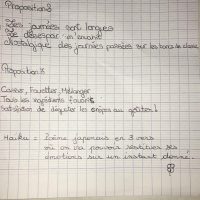 Proposition 3
Les journées sont longues
Le désespoir m'envahit
Nostalgique des journées passées sur les bancs de classe.
Proposition 4
Casser, Fouetter, Mélanger
Tous les ingrédients favoris
Satisfaction de déguster les crêpes au goûter !
Haïku = Poème japonais en 3 vers
où on va pouvoir restituer ses
émotions sur un instant donné.